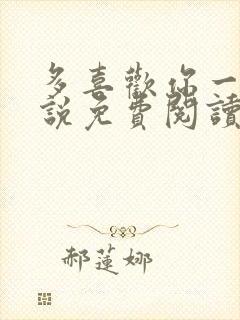 多喜歡你一
說免費閱讀
郝蓮娜